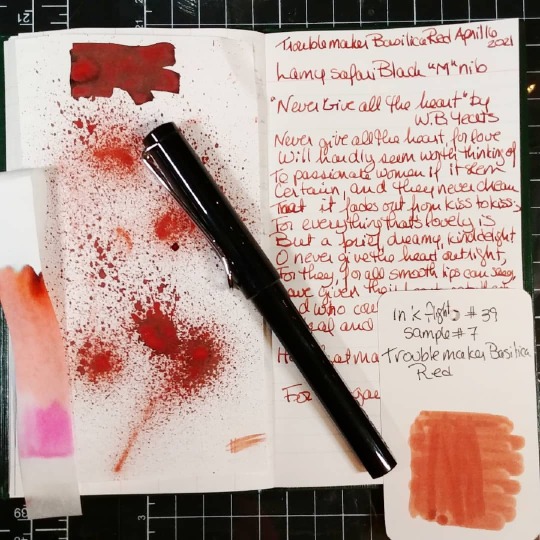 Troublemaker Basilica Red April 16
2021
Lamy Safari Black "M" nib
"Never Give all the heart" by
W.B Yeats
Never give all the heart, for love
Will hardly seem worth thinking of
To passionate women if it seem
Certain, and they never dream
That it fades out from kiss to kiss;
For everything that's lovely is
But a brief, dreamy, kind delight
O never give the heart outright,
For they, for all smooth lips can say,
ave given their
d who cou
eaf and
H
Fo
in k flight #39
sample #7
troublemaker Basilica
Red
21
39
3